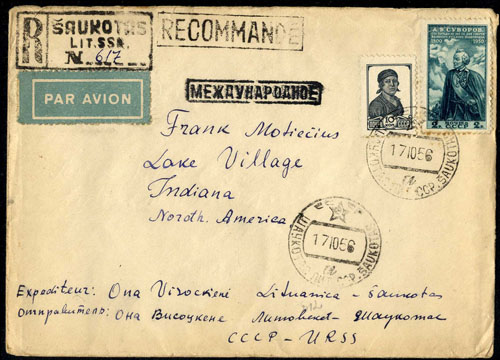 R
ŠAUKOTAS
LIT.SSR.
N. 617
RECOMMANDÉ
PAR AVION
МЕЖДУНАРОДНОЕ
А.В.СУВОРОВ
1800 1950
10
2
Frank Motiecius
Lake Village
Indiana
North. America
171056
ССР. ŠAUKOTAS
171056
ССР. ŠAUKOTAS
Expediteur: Ona Visockiene Lituanica - Šaukotas
Отправитель: Она Висоцкене Литовск Шаукотас
СССР - URSS